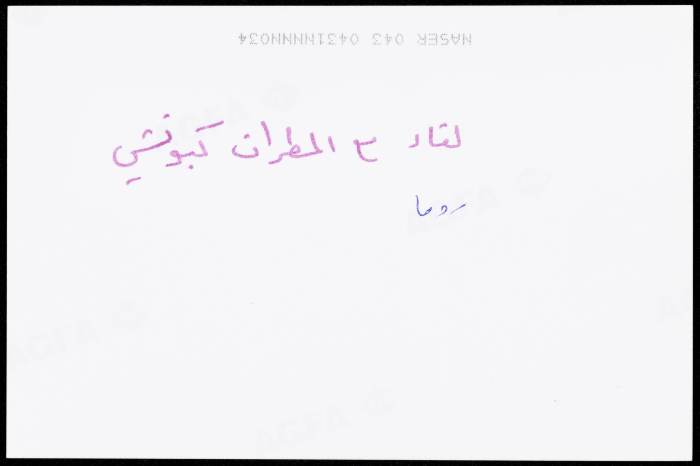 NASER 043 0431NNNN034
لقاء مع المطران كبوتشي
روما
AGFA
AGFA
AGFA
AGFA